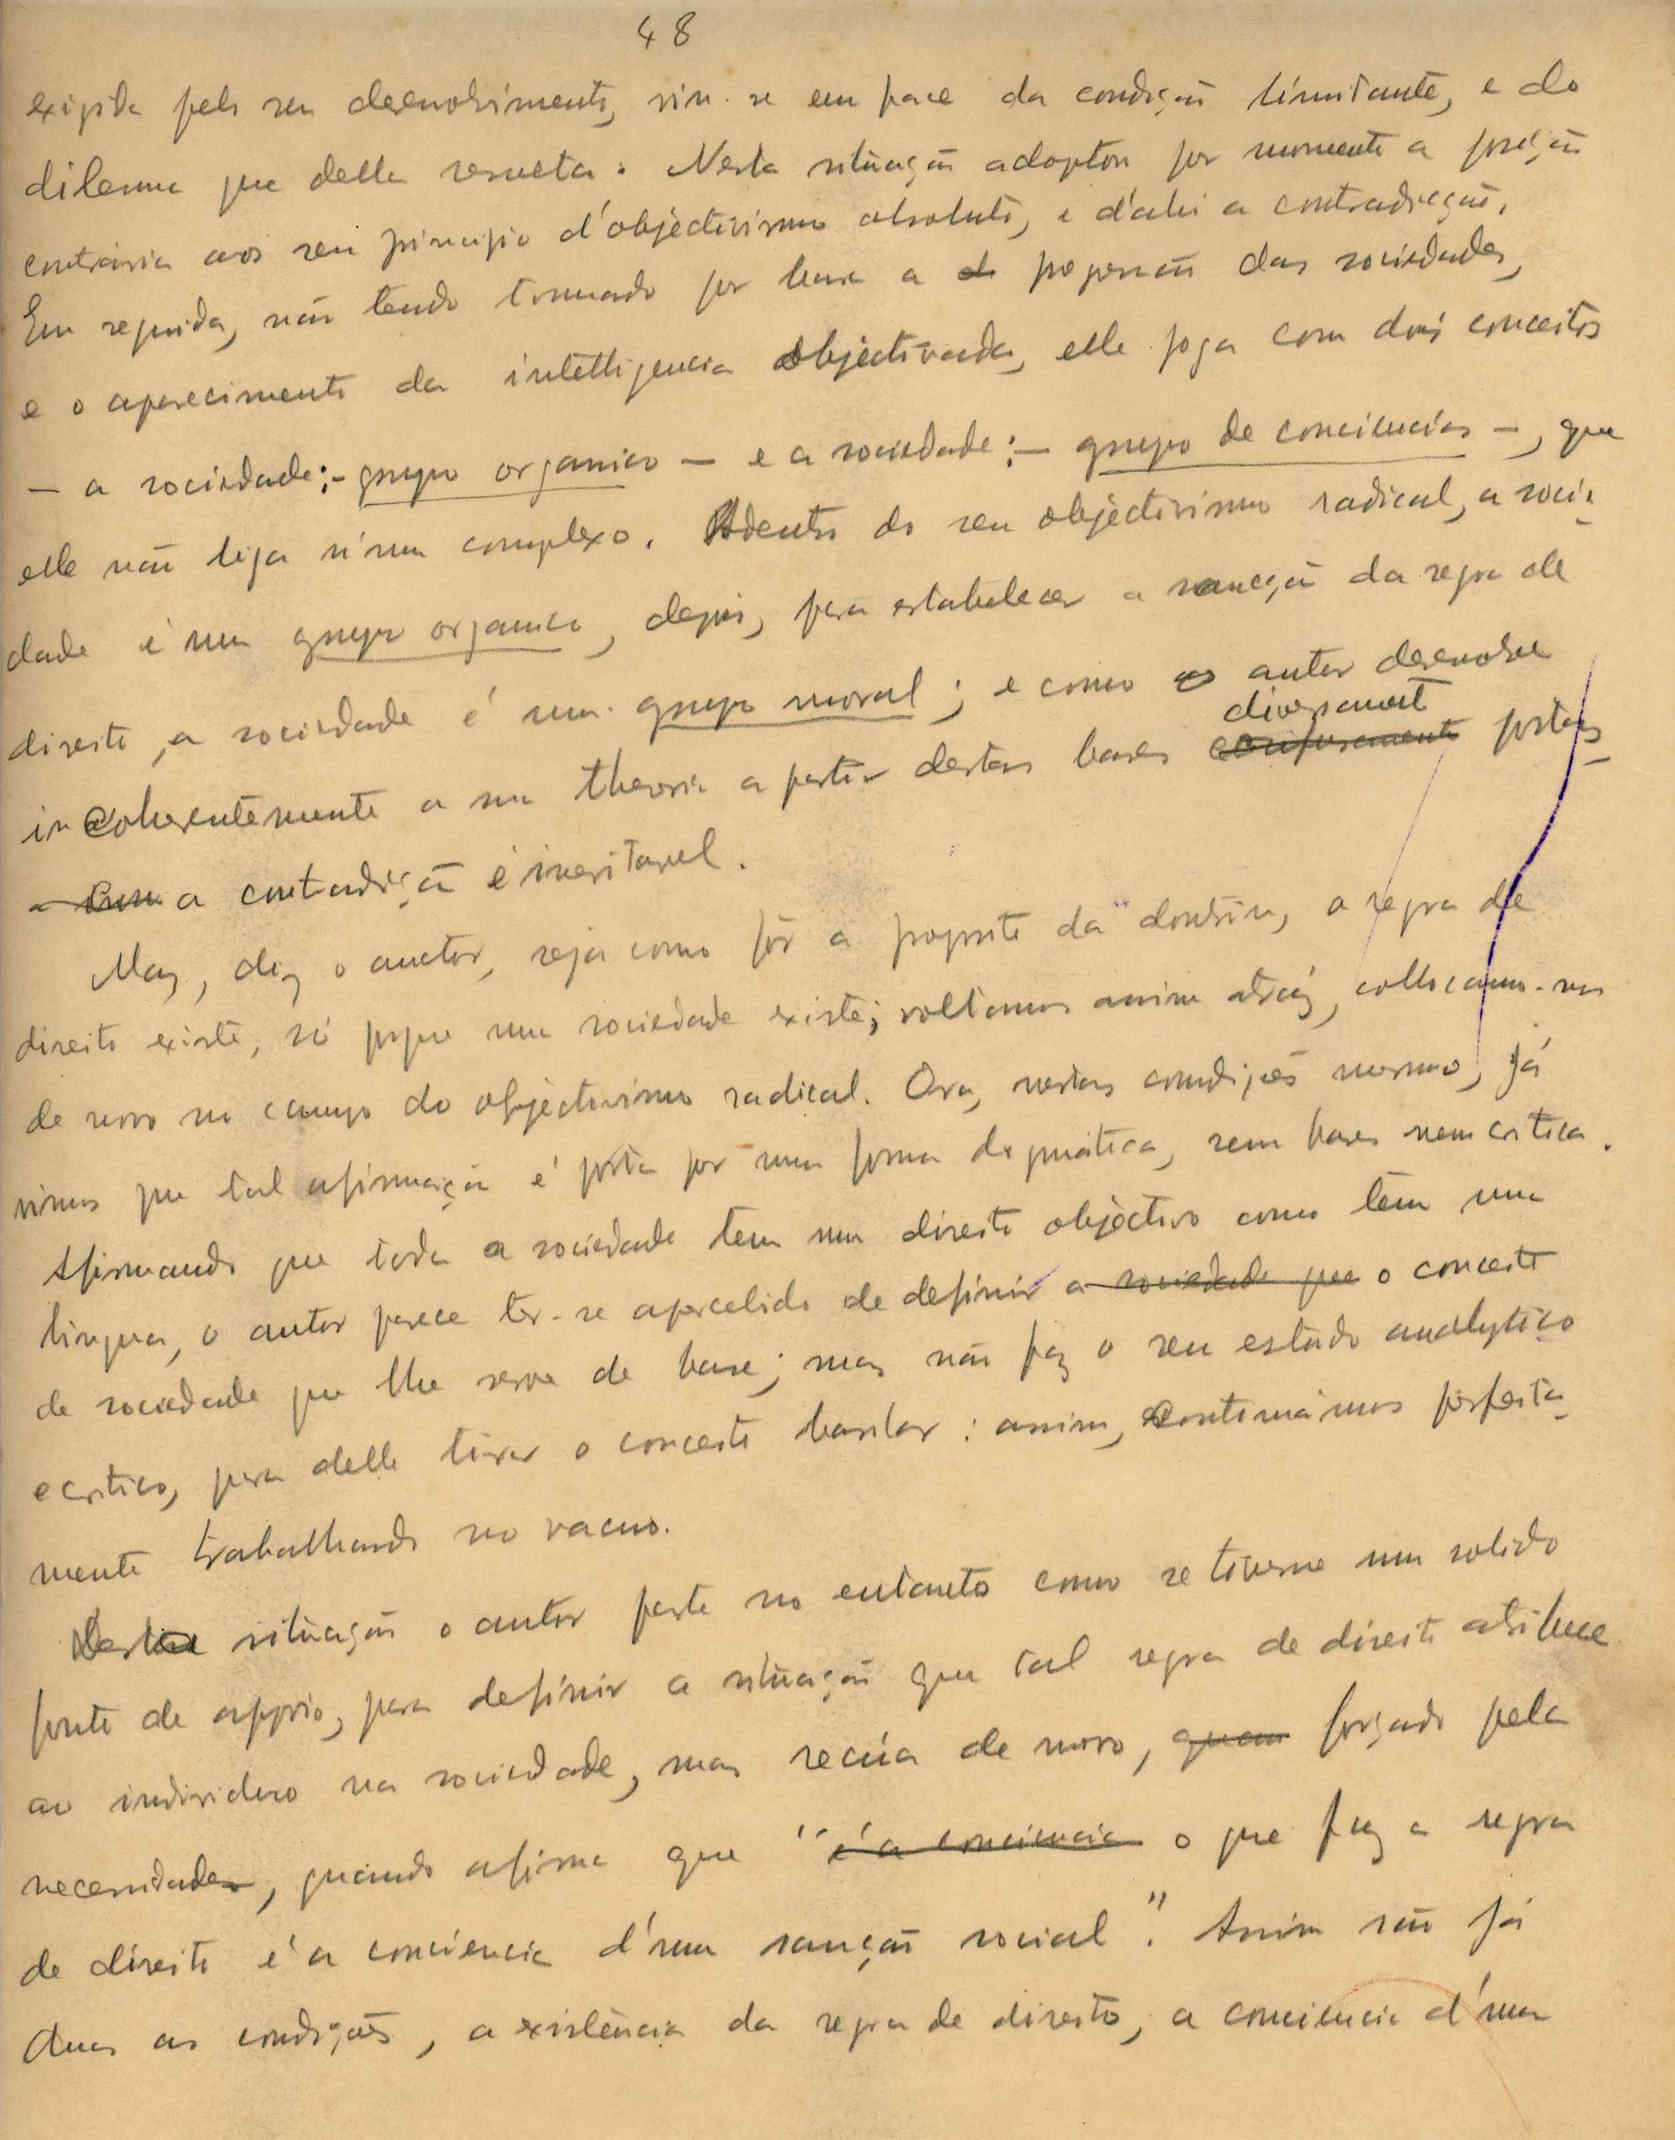 48
exigida pelo seu desenvolvimento, viu-se em face da condição limitante, e do
dilema que della resulta. Nesta situação adoptou por momento a posição
contraria aos seu principio d'objectivismo absoluto, e d'ahi a contradicção.
Em seguida, não tendo tomado por base a progressão das sociedades,
e o aparecimento da intelligencia objectivada, elle joga com dois conceitos
— a sociedade:- grupo organico — e a sociedade:- grupo de consciencias —, que
elle não liga n'um complexo. Adentro do seu objectivismo radical, a socie-
dade é um grupo organico, depois, para estabelecer a sancção da regra de
direito, a sociedade é um grupo moral; e como o autor desenvolve
diversamente
incoherentemente a sua theoria a partir destas bases confusamente postas
a contradição é inevitavel.
Mas, diz o auctor, seja como fôr a proposito da doutrina, a regra de
direito existe, só porque uma sociedade existe; voltamos assim atráz, collocamo-nos
de novo no campo do objectivismo radical. Ora, nestas condições mesmo, já
vimos que tal afirmação é posta por uma forma dogmática, sem bases nem critica.
Afirmando que toda a sociedade tem um direito objectivo como tem uma
lingua, o autor parece ter-se apercebido de definir a sociedade que o conceito
de sociedade que lhe serve de base; mas não faz o seu estudo analytico
e critico, para delle tirar o conceito basilar: assim, continuámos perfeita-
mente trabalhando no vacuo.
Desta situação o autor parte no entanto como se tivesse um solido
ponto de appoio, para definir a situação que tal regra de direito atribue
ao individuo na sociedade, mas recúa de novo, quan forçado pela
necessidade, quando afirma que "é a consciencia o que faz a regra
de direito é a consciencia d'uma sanção social". Assim são já
duas as condições, a existência da regra de direito, a consciencia d'uma